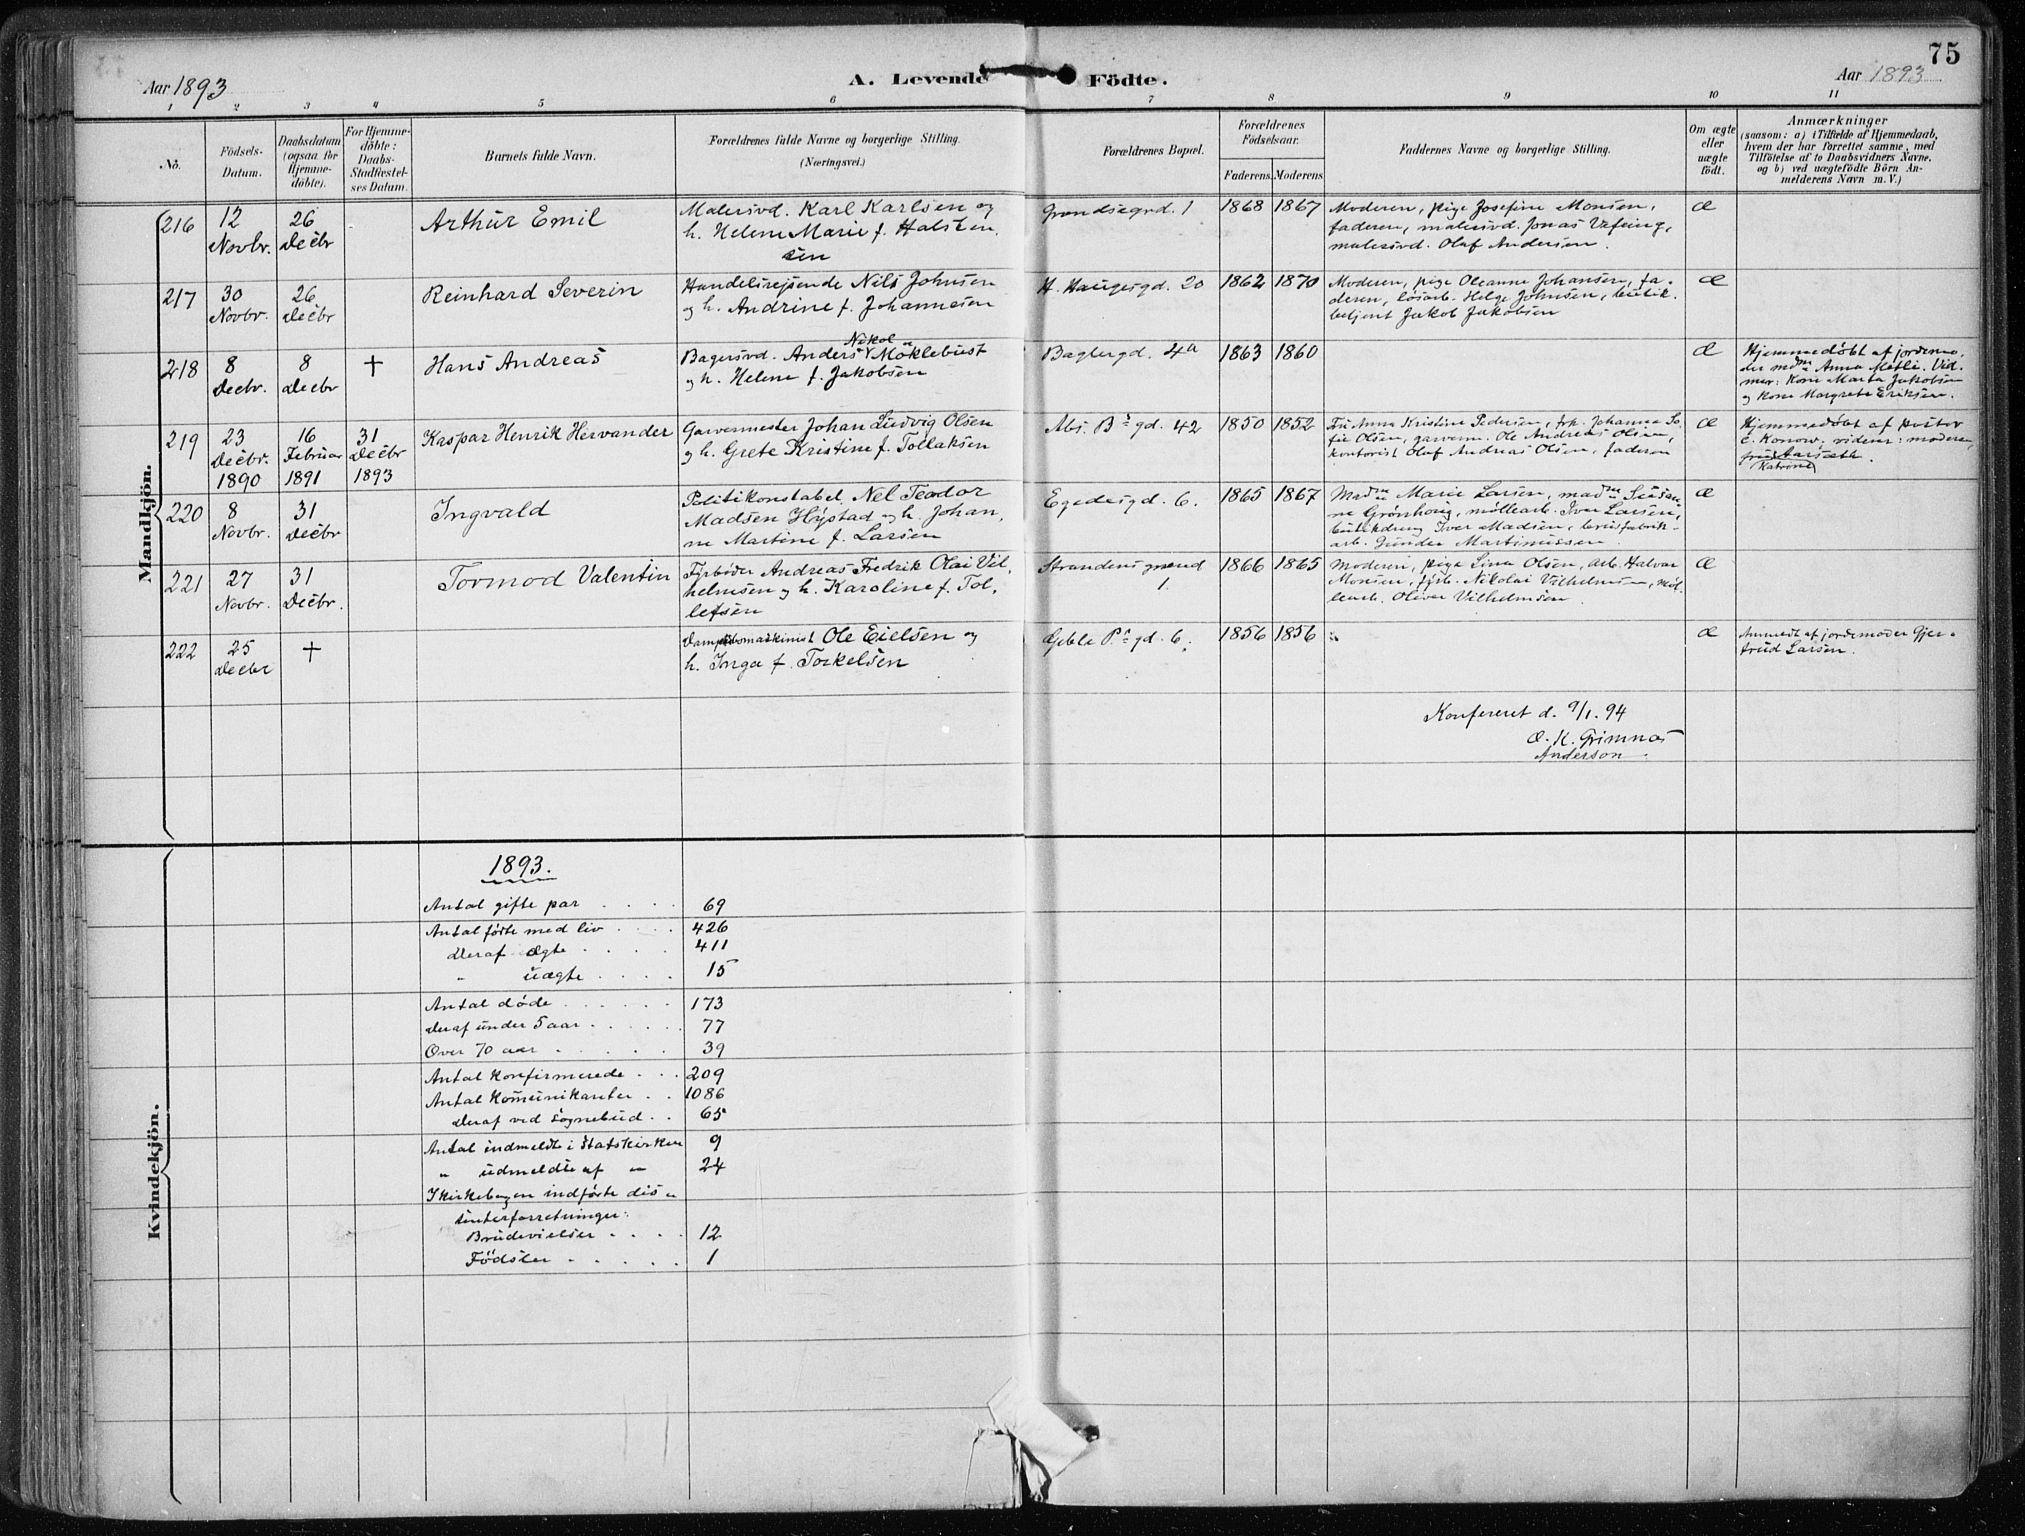 75
Aar 1893
A. Levende Födte.
Aar 1893
1 2 3 4 5 6 7 8 9 10 11
No.
Födsels-
Datum.
Daabsdatum
(ogsaa for
Hjemme-
döbte).
For Hjemme-
döbte:
Daabs-
Stadfæstel-
ses Datum.
Barnets fulde Navn.
Forældrenes fulde Navne og borgerlige Stilling.
(Næringsvei.)
Forældrenes Bopæl.
Forældrenes
Födselsaar.
Faderens. Moderens.
Faddernes Navne og borgerlige Stilling.
Om ægte
eller
uægte
födt.
Anmærkninger
(saasom: a) i Tilfælde af Hjemmedaab,
hvem der har forrettet samme, med
Tilföielse af to Daabsvidners Navne,
og b) ved uægtefödte Börn An-
melderens Navn m. V.)
Mandkjön.
216
12
Novbr.
26
Decbr
Arthur Emil
Malersvd. Karl Karlsen og
h. Helene Marie f. Halsten
sen
Grøndsegrd. 1
1868 1867
Moderen, pige Josefine Monsen,
faderen, malersvd. Jonas
malersvd. Olaf Andersen.
æ
217
30
Novbr.
26
Decbr
Reinhard Severin
Handelsrejsende Nils Johnsen
og h. Andrine f. Johannesen
H. Haugesgd. 20
1862 1870
Moderen, pige Oleanne Johansen, fa-
deren, løsarb. Helge Johnsen, butik.
betjent Jakob Jakobsen
æ
218
8
Decbr.
8
Decbr
†
Hans Andreas
Bagersvd. Anders Nikol Møklebust
og h. Helene f. Jakobsen
Baglergd. 4a
1863 1860
æ
Hjemmedøbt af jordemo-
der mdm Anna Metli. Vid-
ner: Kone Marta Jakobsen
og kone Margrete Eriksen.
219
23
Decbr.
1890
16
Februar
1891
31
Decbr
1893
Kaspar Henrik Hervander
Garvermester Johan Ludvig Olsen
og h. Grete Kristine f. Tollaksen
Abs. B s gd. 42
1850 1852
Fru Anna Kristine Pedersen, frk. Johanna So
fie Olsen, garverm. Ole Andreas Olsen,
kontorist Olaf Andreas Olsen, faderen
æ
Hjemmedøbt af pastor
C. Konow. vidner: moderen,
fru Katrine Aarsæth.
220
8
Novbr.
31
Decbr
Ingvald
Politikonstabel Nel Teodor
Madsen Hystad og h. Johan,
ne Martine f. Larsen
Egedesgd. 6.
1865 1867
Madm Marie Larsen, madm Susan
ne Grønhoug, møllearb. Iver Larsen,
butikdreng Iver Madsen, fabrik-
arb. Gunder Martinussen
æ
221
27
Novbr.
31
Decbr.
Tormod Valentin
Fyrbøder Andreas Fredrik Olai Vil,
helmsen og h. Karoline f. Tol,
lefsen
Strandens grænd
1.
1866 1865
Moderen, pige Lina Olsen, arb. Halvar
Monsen, fyrb. Nikolai Vilhelmsen, møl-
learb. Oliver Vilhelmsen.
æ
222
25
Decbr
†
Dampskibsmaskinist Ole Eielsen og
h. Inga f. Torkelsen
Geble P s gd. 6.
1856 1856
æ
Anmeldt af jordemoder Gjer-
trud Larsen.
Konfereret d. 9/1. 94
O. K. Grimnæs
Anderson
Kvindekjön.
1893.
Antal gifte par . . . . 69
Antal fødte med liv . . . . 426
Deraf ægte . . . . 411
" uægte . . . . 15
Antal døde . . . . . . 173
Deraf under 5 aar . . . . . 77
Over 70 aar . . . . . 39
Antal konfirmerede . . . 209
Antal komunikanter . . 1086
Deraf ved sognebud . . 65
Antal indmeldte i Statskirken 9
" udmeldte af " 24
I kirkebogen indførte dis-
senterforretninger:
Brudevielser . . . . 12
Födsler . . . . . 1